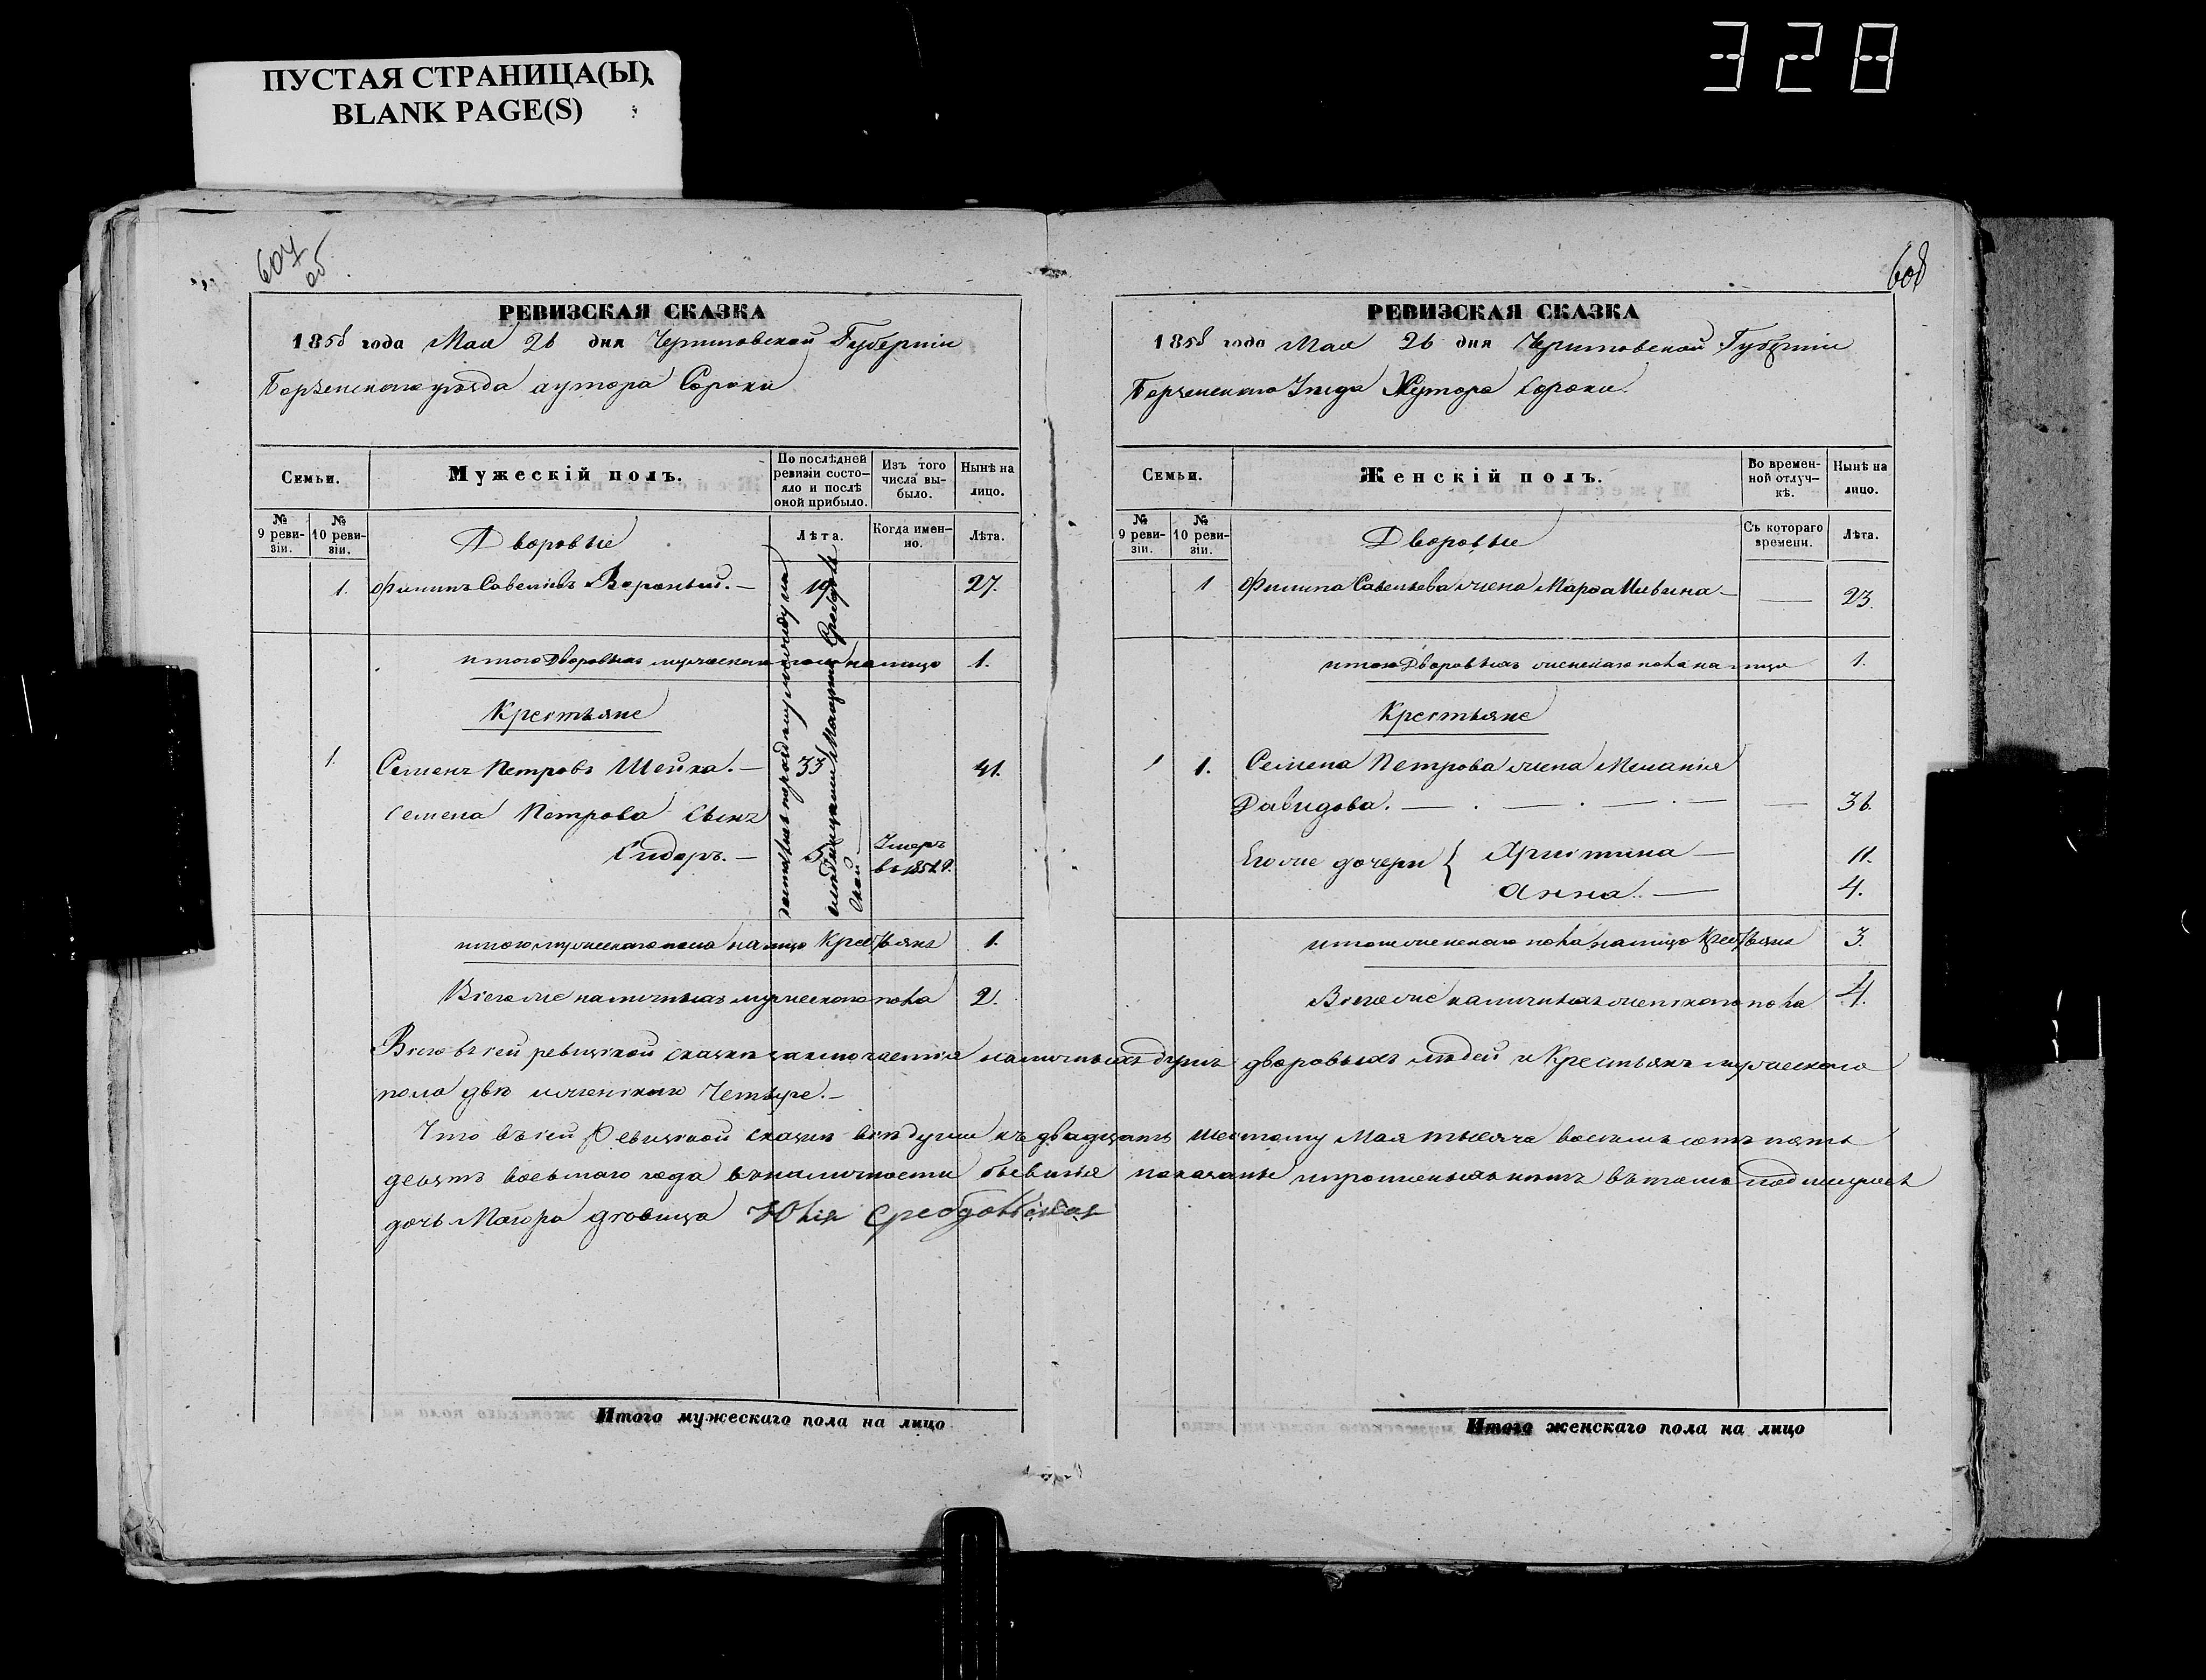 328
ПУСТАЯ СТРАНИЦА(Ы)
BLANK PAGE(S)
607
об
РЕВИЗСКАЯ СКАЗКА
1858 года Мая 26 дня Черниговской Губернiи
Борзенскаго уѣзда хутора Сороки
Семьи.
Мужескій полъ.
По послѣдней ревизіи состо-яло и послѣ оной прибыло.
Изъ того числа вы-было.
Нынѣ на лицо.
№ 9 реви-зіи.
№ 10 реви-зіи.
Дворовые
Лѣта.
Когда имен-но.
Лѣта.
1. Филипъ Савельевъ Вороный. — 19 27.
итого Дворовыхъ мужескаго пола на лицо 1.
Крестьяне
1. Семенъ Петровъ Шейка. — 33 41.
Семена Петрова Сынъ
Сидоръ. — 5 Умеръ
въ 1851 г.
итого мужескаго пола на лицо Крестьянъ 1.
Всего же наличныхъ мужескаго пола 2.
608
РЕВИЗСКАЯ СКАЗКА
1858 года Мая 26 дня Черниговской Губернiи
Борзенскаго Уѣзда Хутора Сороки.
Семьи.
Женскій полъ.
Во времен-ной отлуч-кѣ.
Нынѣ на лицо.
№ 9 реви-зіи.
№ 10 реви-зіи.
Дворовые
Съ котораго времени.
Лѣта.
1 Филипа Савельева жена Марѳа — 23.
итого Дворовыхъ женскаго пола на лицо 1.
Крестьяне
1 1. Семена Петрова жена Меланія
Давидова. — . — . — . — — 36.
Его же дочери { Христина — 11.
Анна. — 4.
итого женскаго пола на лицо Крестьянъ 3.
Всего же наличныхъ женскаго пола 4.
Всего въ сей ревизской сказкѣ заключается наличныхъ душъ дворовыхъ людей и Крестьянъ мужескаго
пола двѣ и женскаго Четыре. —
Что въ сей Ревизской сказкѣ всѣ души къ двадцать шестому Мая тысяча восемь сотъ пять
десятъ восьмаго года въ наличности бывшія показаны и прописныхъ нѣтъ въ томъ подписуюсь
дочь Маіора дѣвица Юлія
Итого мужескаго пола на лицо
Итого женскаго пола на лицо